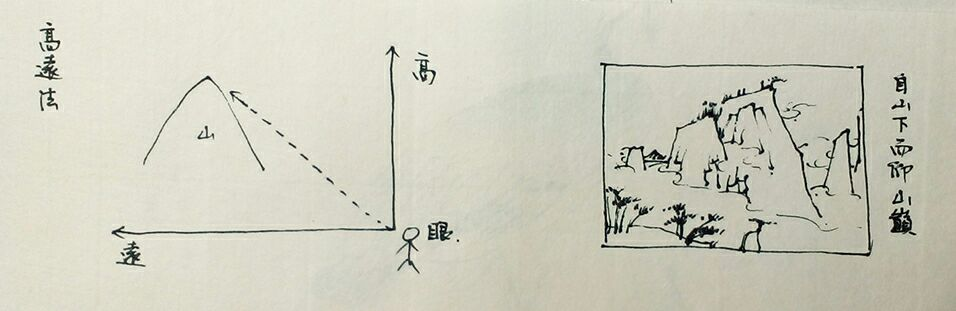 高遠法
高
山
眼.
遠
自山下而仰山巔